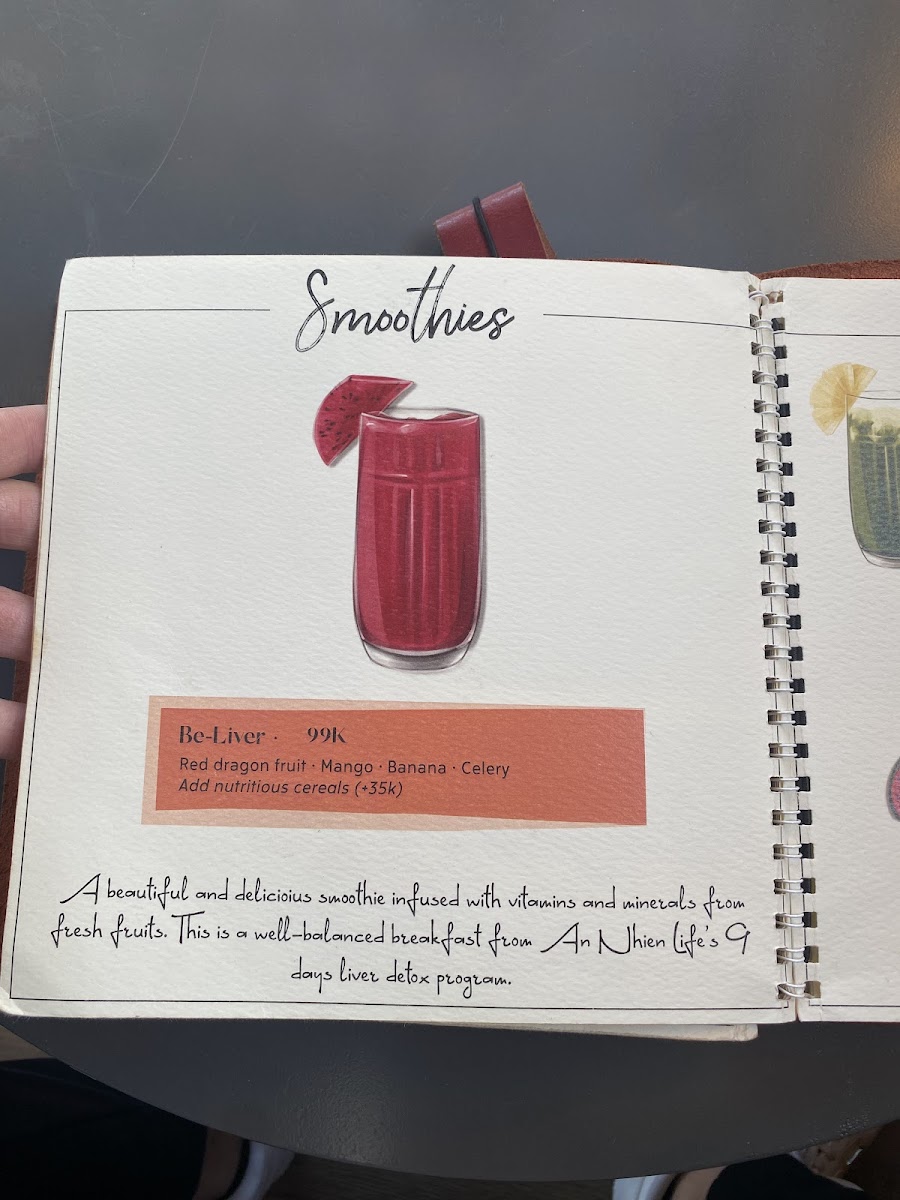 Smoothies
Be-Liver · 99K
Red dragon fruit · Mango · Banana · Celery
Add nutritious cereals (+35k)
A beautiful and delicioius smoothie infused with vitamins and minerals from
fresh fruits. This is a well-balanced breakfast from An Nhien Life's 9
days liver detox program.